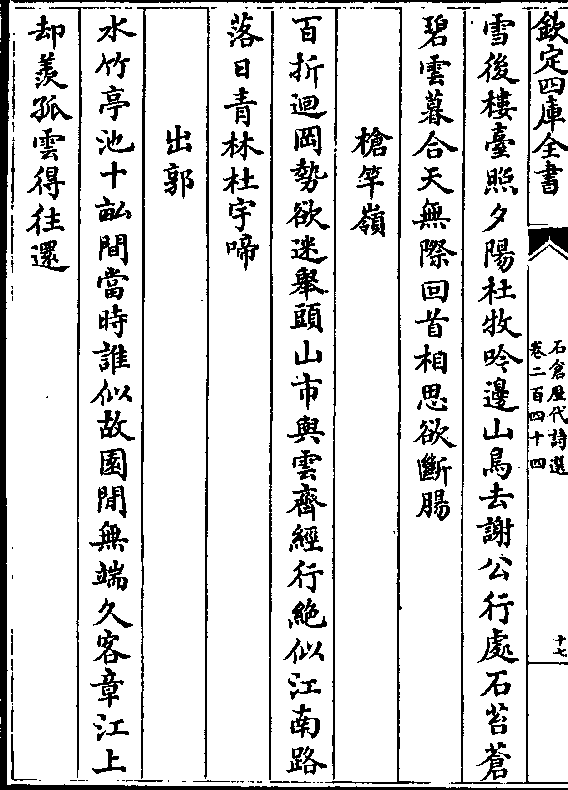 欽定四庫全書
石倉歷代詩選
卷二百四十四
十七
雪後樓臺照夕陽杜牧吟邊山鳥去謝公行處石苔蒼
碧雲暮合天無際回首相思欲斷腸
槍竿嶺
百折迴岡勢欲迷舉頭山市與雲齊經行絶似江南路
落日青林杜宇啼
出郭
水竹亭池十畝間當時誰似故園閒無端久客章江上
却羨孤雲得往還